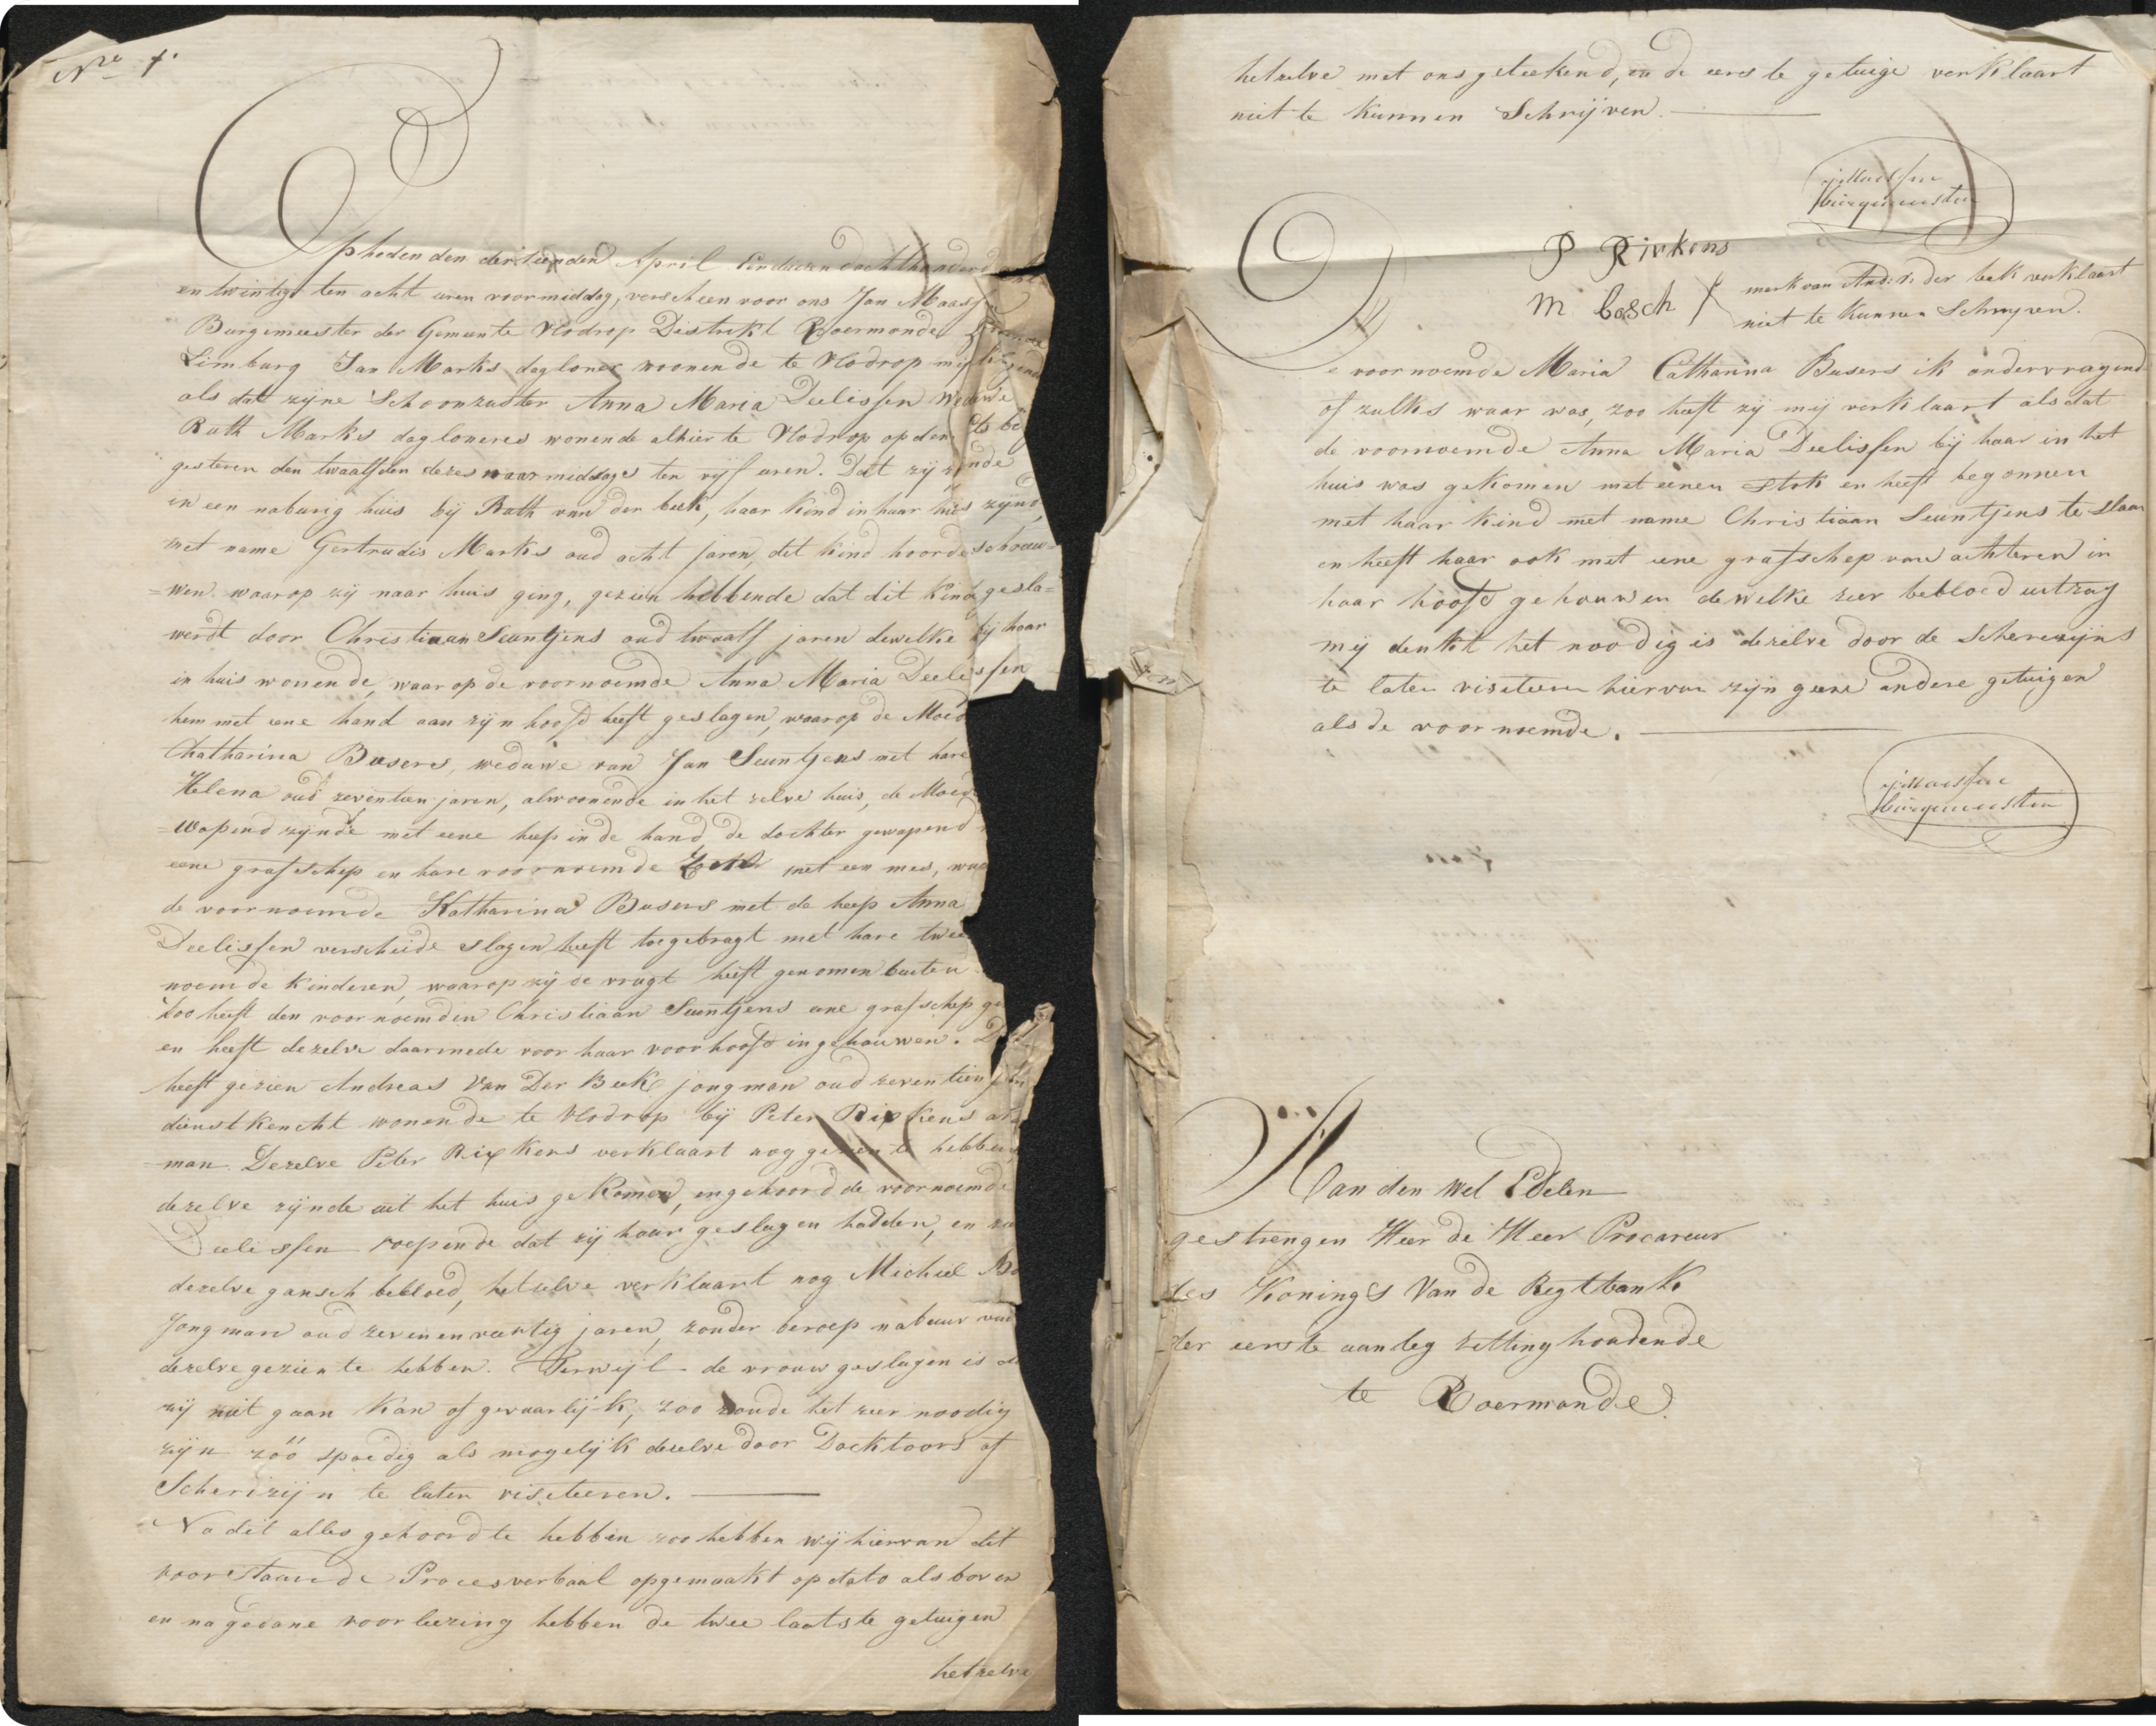 Nro 7.
Op heden den dertienden April Eenduizend achthonderd acht
en twintig ten acht uren voormiddag, verscheen voor ons Jan Maassen
Burgemeester der Gemeente Vlodrop Distrikt Roermonde
Limburg Jan Marks dagloner woonende te Vlodrop
als dat zijne Schoonzuster Anna Maria Deelissen Weduwe
Ruth Marks dagloneres wonende alhier te Vlodrop op den
gesteren den twaalfden dezes naarmiddags ten vijf uren. Dat zij zijnde
in een naburig huis bij Ruth van der beek, haar kind in haar huis zijnd,
met name Gertrudis Marks oud acht jaren, dit kind hoorde schreuw=
=wen waarop zij naar huis ging, gezien hebbende dat dit kind gesla=
werdt door Christiaan Seuntjens oud twaalf jaren dewelke bij haar
in huis wonende, waar op de voornoemde Anna Maria Deelissen
hem met eene hand aan zijn hoofd heeft geslagen, waarop de Moed
Chatharina Busers, weduwe van Jan Seuntjens met hare
Helena oud zeventien jaren, alwoonende in het zelve huis, de Moed
=wapend zijnde met eene heep in de hand de dochter gewapend
eene grafschep en hare voornoemde met een mes, waa
de voornoemde Katharina Busers met de heep Anna
Deelissen verscheide slagen heeft toegebragt met hare twee
noemde kinderen, waarop zij de vlugt heeft genomen buiten
Zoo heeft den voornoemden Christiaan Seuntjens eene grafschep ge
en heeft dezelve daarmede voor haar voorhoofd ingehouwen. D
heeft gezien Andreas Van Der Beek jongman oud zeventien
dienstkencht wonende te Vlodrop bij Peter Rixkens
man. Dezelve Peter Rixkens verklaart nog gezien te hebben,
dezelve zijnde uit het huis gekomen, en gehoord de voornoemde
Deelissen roepende dat zij haar geslagen hadden, en
dezelve gansch bebloed, hetzelve verklaart nog Michiel Bo
Jongman oud zevenenveertig jaren, zonder beroep nabuur van
dezelve gezien te hebben. Terwijl de vrouw geslagen is
zij niet gaan kan of gevaarlijk, zoo zoude het zeer noodig
zijn zoo spoedig als mogelijk dezelve door Docktoors of
Scherizijn te laten visiteeren.
Na dit alles gehoord te hebben zoo hebben wij hiervan dit
voorstaande Procesverbaal opgemaakt op dato als boven
en na gedane voorleezing hebben de twee laatste getuigen
hetzelve
hetzelve met ons geteekend, en de eerste getuige verklaart
niet te kunnen Schrijven.
jMaassen
burgemeester
P Rirkens
M bosch X merk van And: v: der beek verklaart
niet te kunnen Schrijven.
De voornoemde Maria Catharina Busers ik ondervragend
of zulks waar was, zoo heeft zij mij verklaart als dat
de voornoemde Anna Maria Deelissen bij haar in het
huis was gekomen met eenen stok en heeft begonnen
met haar kind met name Christiaan Seuntjens te slaan
en heeft haar ook met eene grafschep van achteren in
haar hoofd gehouwen dewelke zeer bebloed uitzag
mij denkt het noodig is dezelve door de Scherezijns
te laten visiteeren hiervan zijn geene andere getuigen
als de voornoemde.
jMaassen
burgemeester
Aan den Wel Edelen
gestrengen Heer de Heer Procureur
des Konings Van de Regtbank
der eerste aanleg zitting houdende
te Roermonde.